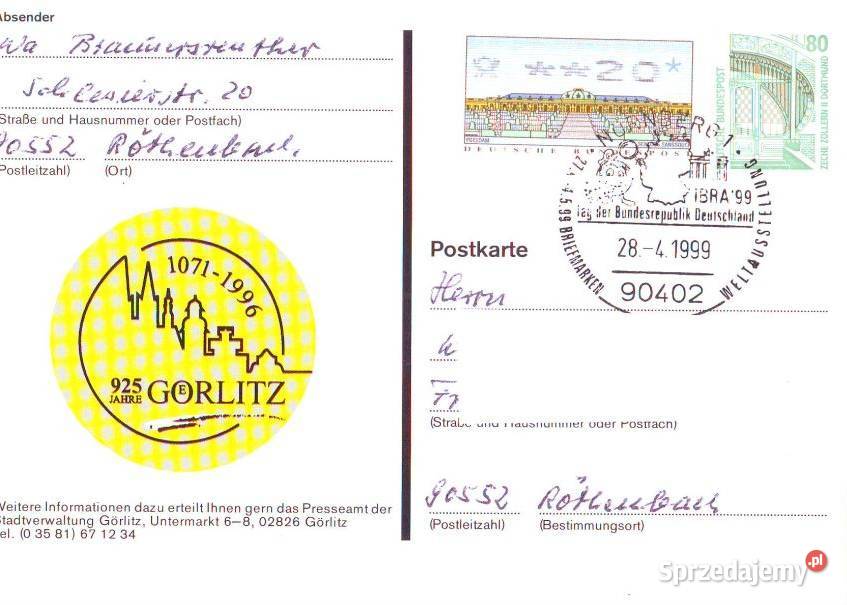 Absender
Straße und Hausnummer oder Postfach)
90552 Röthenbach
Postleitzahl) (Ort)
1071-1996
925 JAHRE GÖRLITZ
Weitere Informationen dazu erteilt Ihnen gern das Presseamt der
Stadtverwaltung Görlitz, Untermarkt 6–8, 02826 Görlitz
Tel. (0 35 81) 67 12 34
**20*
POTSDAM SCHLOSS SANSSOUCI
DEUTSCHE BUNDESPOST
80
DEUTSCHE BUNDESPOST
ZECHE ZOLLERN II DORTMUND
NÜRNBERG 1
IBRA'99
Tag der Bundesrepublik Deutschland
28.-4.1999
90402
27.4.-4.5.99 BRIEFMARKEN WELTAUSSTELLUNG
Postkarte
Herrn
(Straße und Hausnummer oder Postfach)
90552 Röthenbach
(Postleitzahl) (Bestimmungsort)
Sprzedajemy.pl